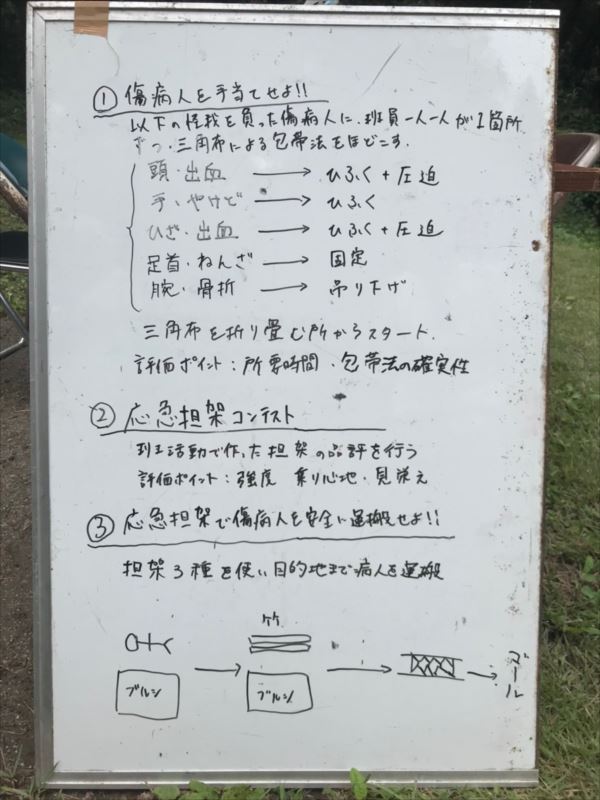 ① 傷病人を手当てせよ!!
以下の怪我を負った傷病人に、班員一人一人が1箇所
ずつ、三角布による包帯法をほどこす.
頭・出血 → ひふく + 圧迫
手・やけど → ひふく
ひざ・出血 → ひふく + 圧迫
足首・ねんざ → 固定
腕・骨折 → 吊り下げ
三角布を折り畳む所からスタート.
評価ポイント:所要時間・包帯法の確実性
② 応急担架コンテスト
班活動で作った担架の品評を行う
評価ポイント:強度 乗り心地・見栄え
③ 応急担架で傷病人を安全に運搬せよ!!
担架3種を使い目的地まで病人を運搬
竹
ブルシ → ブルシ → → ゴール